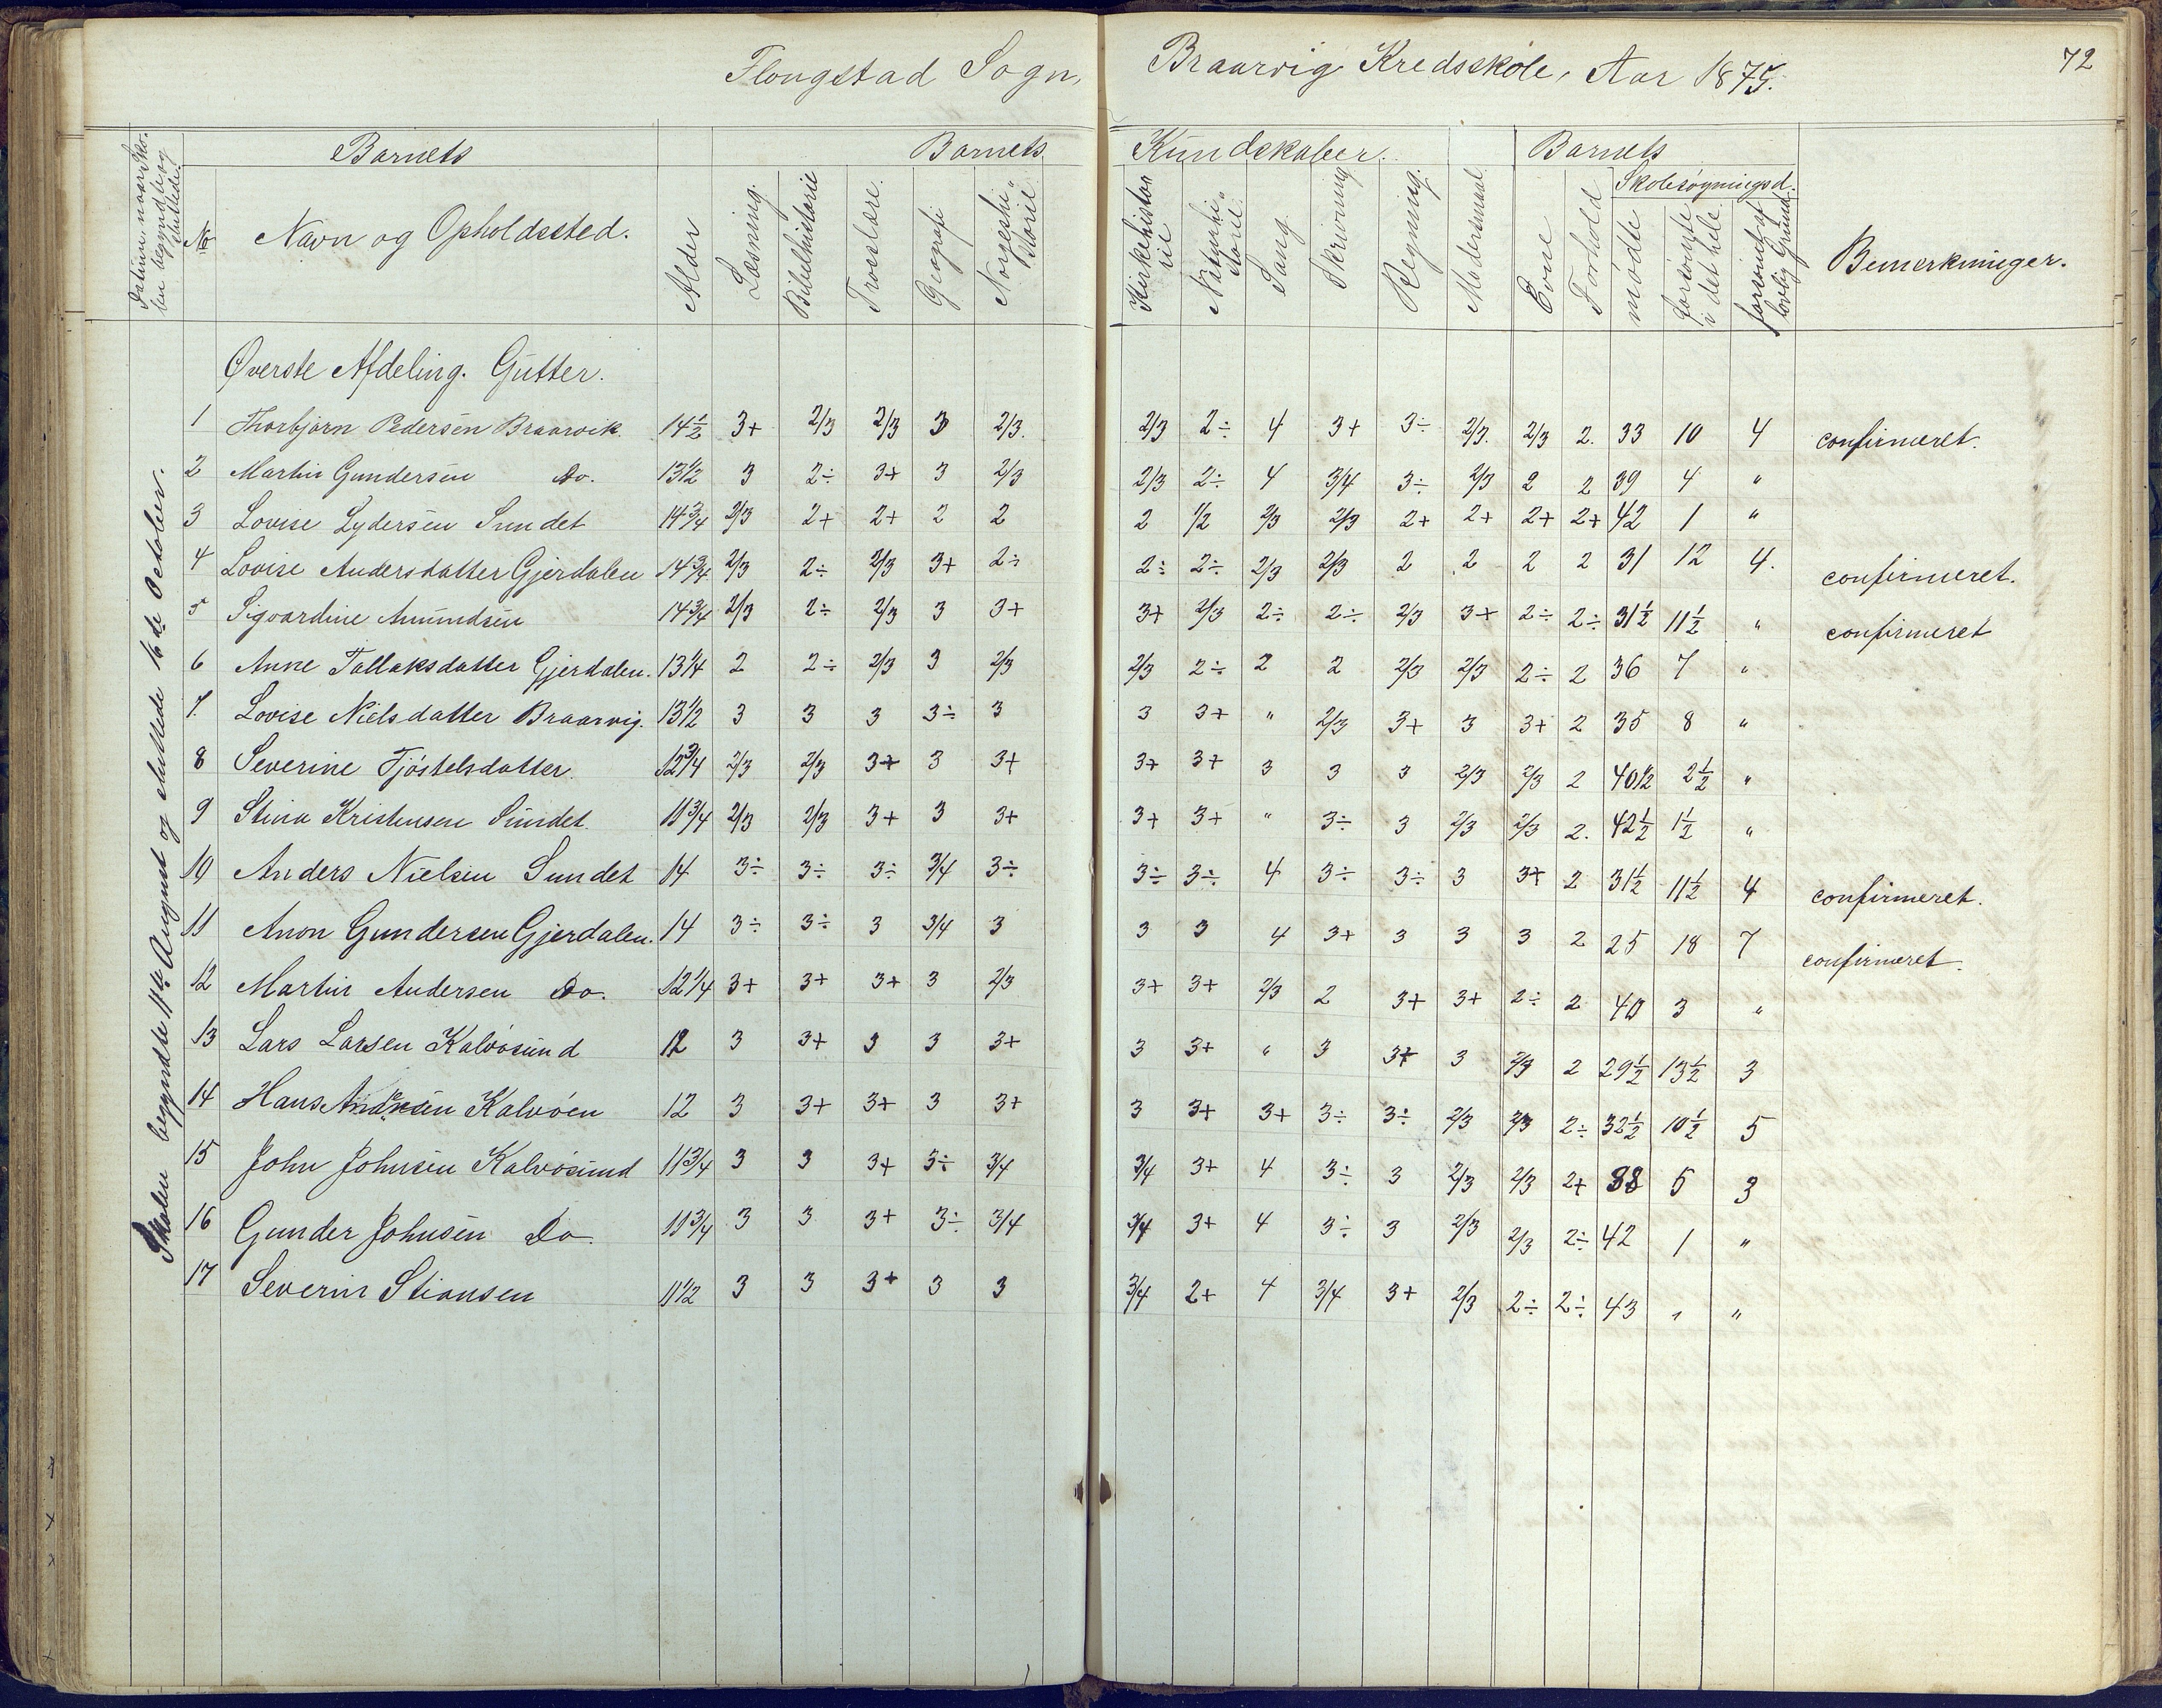 Flougstad Sogn, Braarvig Kredsskole, Aar 1875.
72
Datum, naar Skolen begyndte og sluttede.
Barnets
Barnets Kundskaber.
Barnets
Skolesøgningsd.
No Navn og Opholdssted. Alder Læsning. Bibelhistorie Troeslære. Geografi Norgeshistorie Kirkehistorie Naturhistorie. Sang Skrivning Regning. Modersmaal Evne Forhold mødte forsømte i det hele forsømt af lovlig Grund Bemerkninger.
Skolen begyndte 11te August og sluttede 16de October.
Øverste Afdeling. Gutter.
1 Thorbjørn Pedersen Braarvik. 14½ 3+ 2/3 2/3 3 2/3. 2/3 2÷ 4 3+ 3÷ 2/3. 2/3 2. 33 10 4 confirmeret.
2 Martin Gundersen Do. 13½ 3 2÷ 3+ 3 2/3 2/3 2÷ 4 3/4 3÷ 2/3 2 2 39 4 "
3 Lovise Lydersen Sundet 14¾ 2/3 2+ 2+ 2 2 2 1/2 2/3 2/3 2+ 2+ 2+ 2+ 42 1 "
4 Lovise Andersdatter Gjerdalen 14¾ 2/3 2÷ 2/3 3+ 2÷ 2÷ 2÷ 2/3 2/3 2 2 2 2 31 12 4. confirmeret.
5 Sigvardine Amundsen 14¾ 2/3 2÷ 2/3 3 3+ 3+ 2/3 2÷ 2÷ 2/3 3+ 2÷ 2÷ 31½ 11½ " confirmeret
6 Anne Tallaksdatter Gjerdalen. 13¼ 2 2÷ 2/3 3 2/3 2/3 2÷ 2 2 2/3 2/3 2÷ 2 36 7 "
7. Lovise Nielsdatter Braarvig. 13½ 3 3 3 3÷ 3 3 3+ " 2/3 3+ 3 3+ 2 35 8 "
8 Severine Tjöstelsdatter 12¾ 2/3 2/3 3+ 3 3+ 3+ 3+ 3 3 3 2/3 2/3 2 40½ 2½ "
9 Stina Kristensen Sundet. 11¾ 2/3 2/3 3+ 3 3+ 3+ 3+ " 3÷ 3 2/3 2/3 2. 42½ 1½ "
10 Anders Nielsen Sundet 14 3÷ 3÷ 3÷ 3/4 3÷ 3÷ 3÷ 4 3÷ 3÷ 3 3+ 2 31½ 11½ 4 confirmeret.
11 Anon Gundersen Gjerdalen. 14 3÷ 3÷ 3 3/4 3 3 3 4 3+ 3 3 3 2 25 18 7 confirmeret.
12 Martin Andersen Do. 12¼ 3+ 3+ 3+ 3 2/3 3+ 3+ 2/3 2 3+ 3+ 2÷ 2 40 3 "
13 Lars Larsen Kalvösund 12 3 3+ 3 3 3+ 3 3+ " 3 3+ 3 2/3 2 29½ 13½ 3
14 Hans Andresen Kalvöen 12 3 3+ 3+ 3 3+ 3 3+ 3+ 3÷ 3÷ 2/3 2/3 2÷ 32½ 10½ 5
15 John Johnsen Kalvösund 11¾ 3 3 3+ 3÷ 3/4 3/4 3+ 4 3÷ 3 2/3 2/3 2+ 38 5 3
16 Gunder Johnsen Do. 11¾ 3 3 3+ 3÷ 3/4 3/4 3+ 4 3÷ 3 2/3 2/3 2÷ 42 1 "
17 Severin Stiansen 11½ 3 3 3+ 3 3 3/4 2+ 4 3/4 3+ 2/3 2÷ 2÷ 43 " "